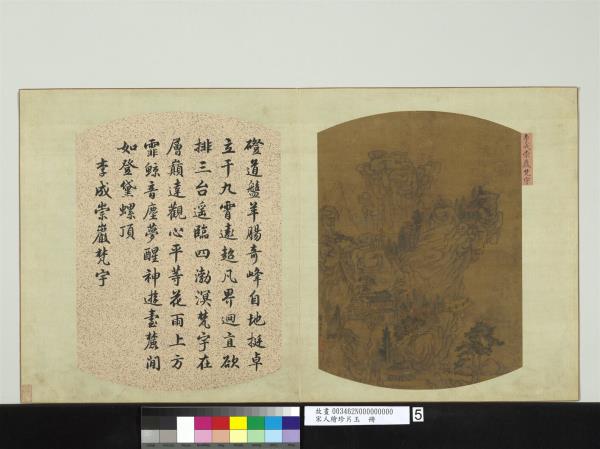 磴道盤羊腸奇峰自地挺卓
立干九霄遠超凡界迥宜欲
排三台遥臨四渤溟梵宇在
層巔達觀心平等花雨上方
霏鯨音塵夢醒神遊畫麓間
如登黛螺頂
李成崇巖梵宇
李成崇巖梵宇
故畫 003462N000000000
宋人繪珍片玉 冊
5